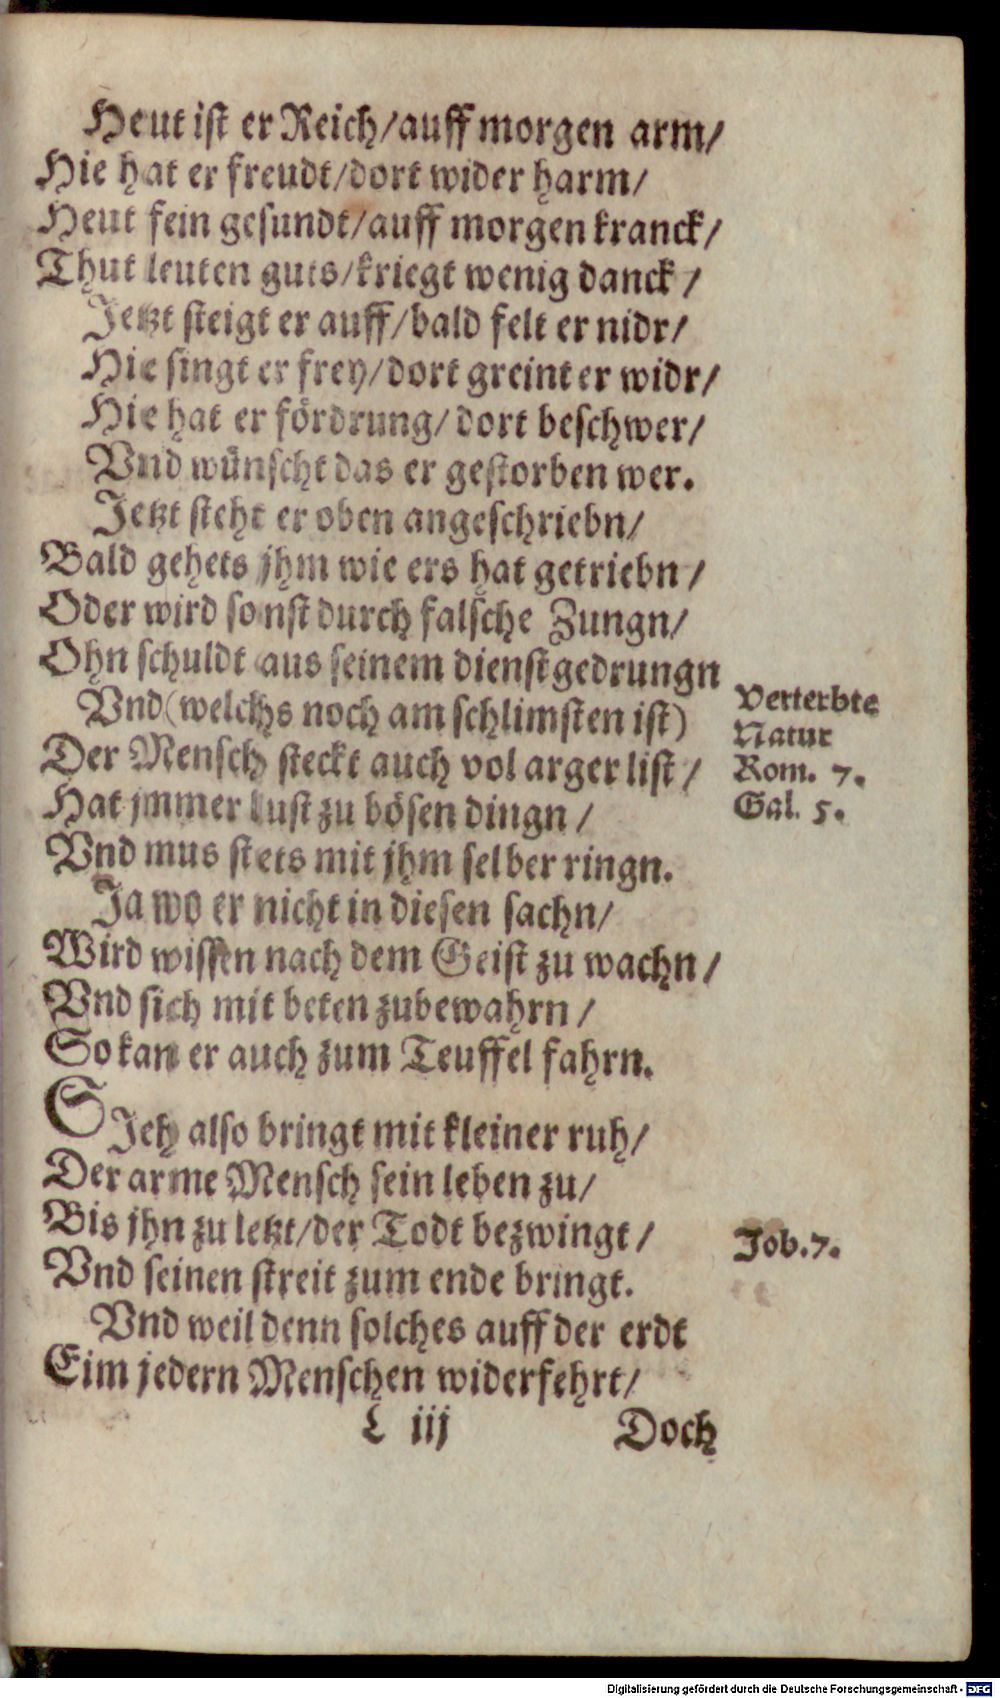 Heut ist er Reich/auff morgen arm/
Hie hat er freudt/dort wider harm/
Heut fein gesundt/auff morgen kranck/
Thut leuten guts/kriegt wenig danck/
Jetzt steigt er auff/bald felt er nidr/
Hie singt er frey/dort greint er widr/
Hie hat er fördrung/dort beschwer/
Vnd wünscht das er gestorben wer.
Jetzt steht er oben angeschriebn/
Bald gehets jhm wie ers hat getriebn/
Oder wird sonst durch falsche Zungn/
Ohn schuldt aus seinem dienst gedrungn
Vnd (welchs noch am schlimsten ist)
Der Mensch steckt auch vol arger list/
Hat jmmer lust zu bösen dingn/
Vnd mus stets mit jhm selber ringn.
Verterbte
Natur
Rom. 7.
Gal. 5.
Ja wo er nicht in diesen sachn/
Wird wissen nach dem Geist zu wachn/
Vnd sich mit beten zubewahrn/
So kan er auch zum Teuffel fahrn.
SJeh also bringt mit kleiner ruh/
Der arme Mensch sein leben zu/
Bis jhn zu letzt/der Todt bezwingt/
Vnd seinen streit zum ende bringt.
Job. 7.
Vnd weil denn solches auff der erdt
Eim jedern Menschen widerfehrt/
L iij
Doch
Digitalisierung gefördert durch die Deutsche Forschungsgemeinschaft - DFG